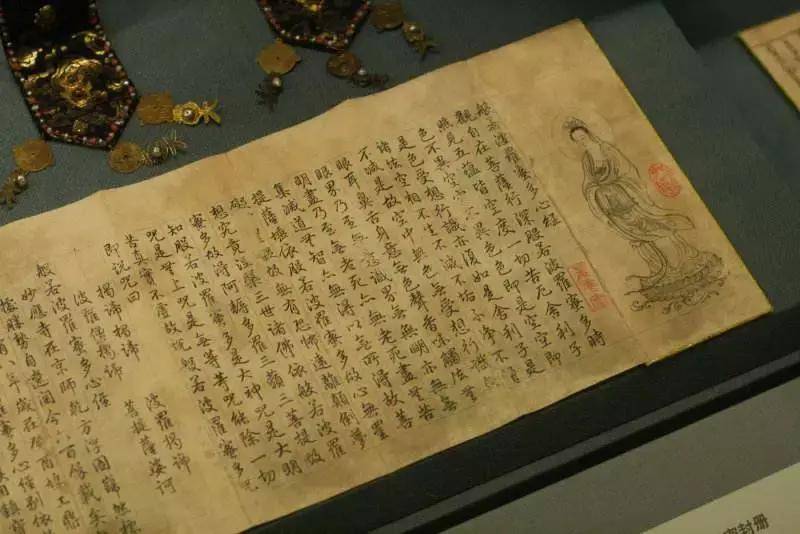 般若波羅蜜多心經
觀自在菩薩行深般若波羅蜜多時
照見五蘊皆空度一切苦厄舍利子
色不異空空不異色色即是空空即
是色受想行識亦復如是舍利子是
諸法空相不生不滅不垢不淨不增
不減是故空中無色無受想行識無
眼耳鼻舌身意無色聲香味觸法無
眼界乃至無意識界無無明亦無無
明盡乃至無老死亦無老死盡無苦
集滅道無智亦無得以無所得故菩
提薩埵依般若波羅蜜多故心無罣
礙無罣礙故無有恐怖遠離顛倒夢
想究竟涅槃三世諸佛依般若波羅
蜜多故得阿耨多羅三藐三菩提故
知般若波羅蜜多是大神呪是大明
呪是無上呪是無等等呪能除一切
苦真實不虛故說般若波羅蜜多呪
即說呪曰
揭諦揭諦 波羅揭諦
波羅僧揭諦 菩提薩婆訶
般若波羅蜜多心經
妙應寺在京師乾方浮圖
封册